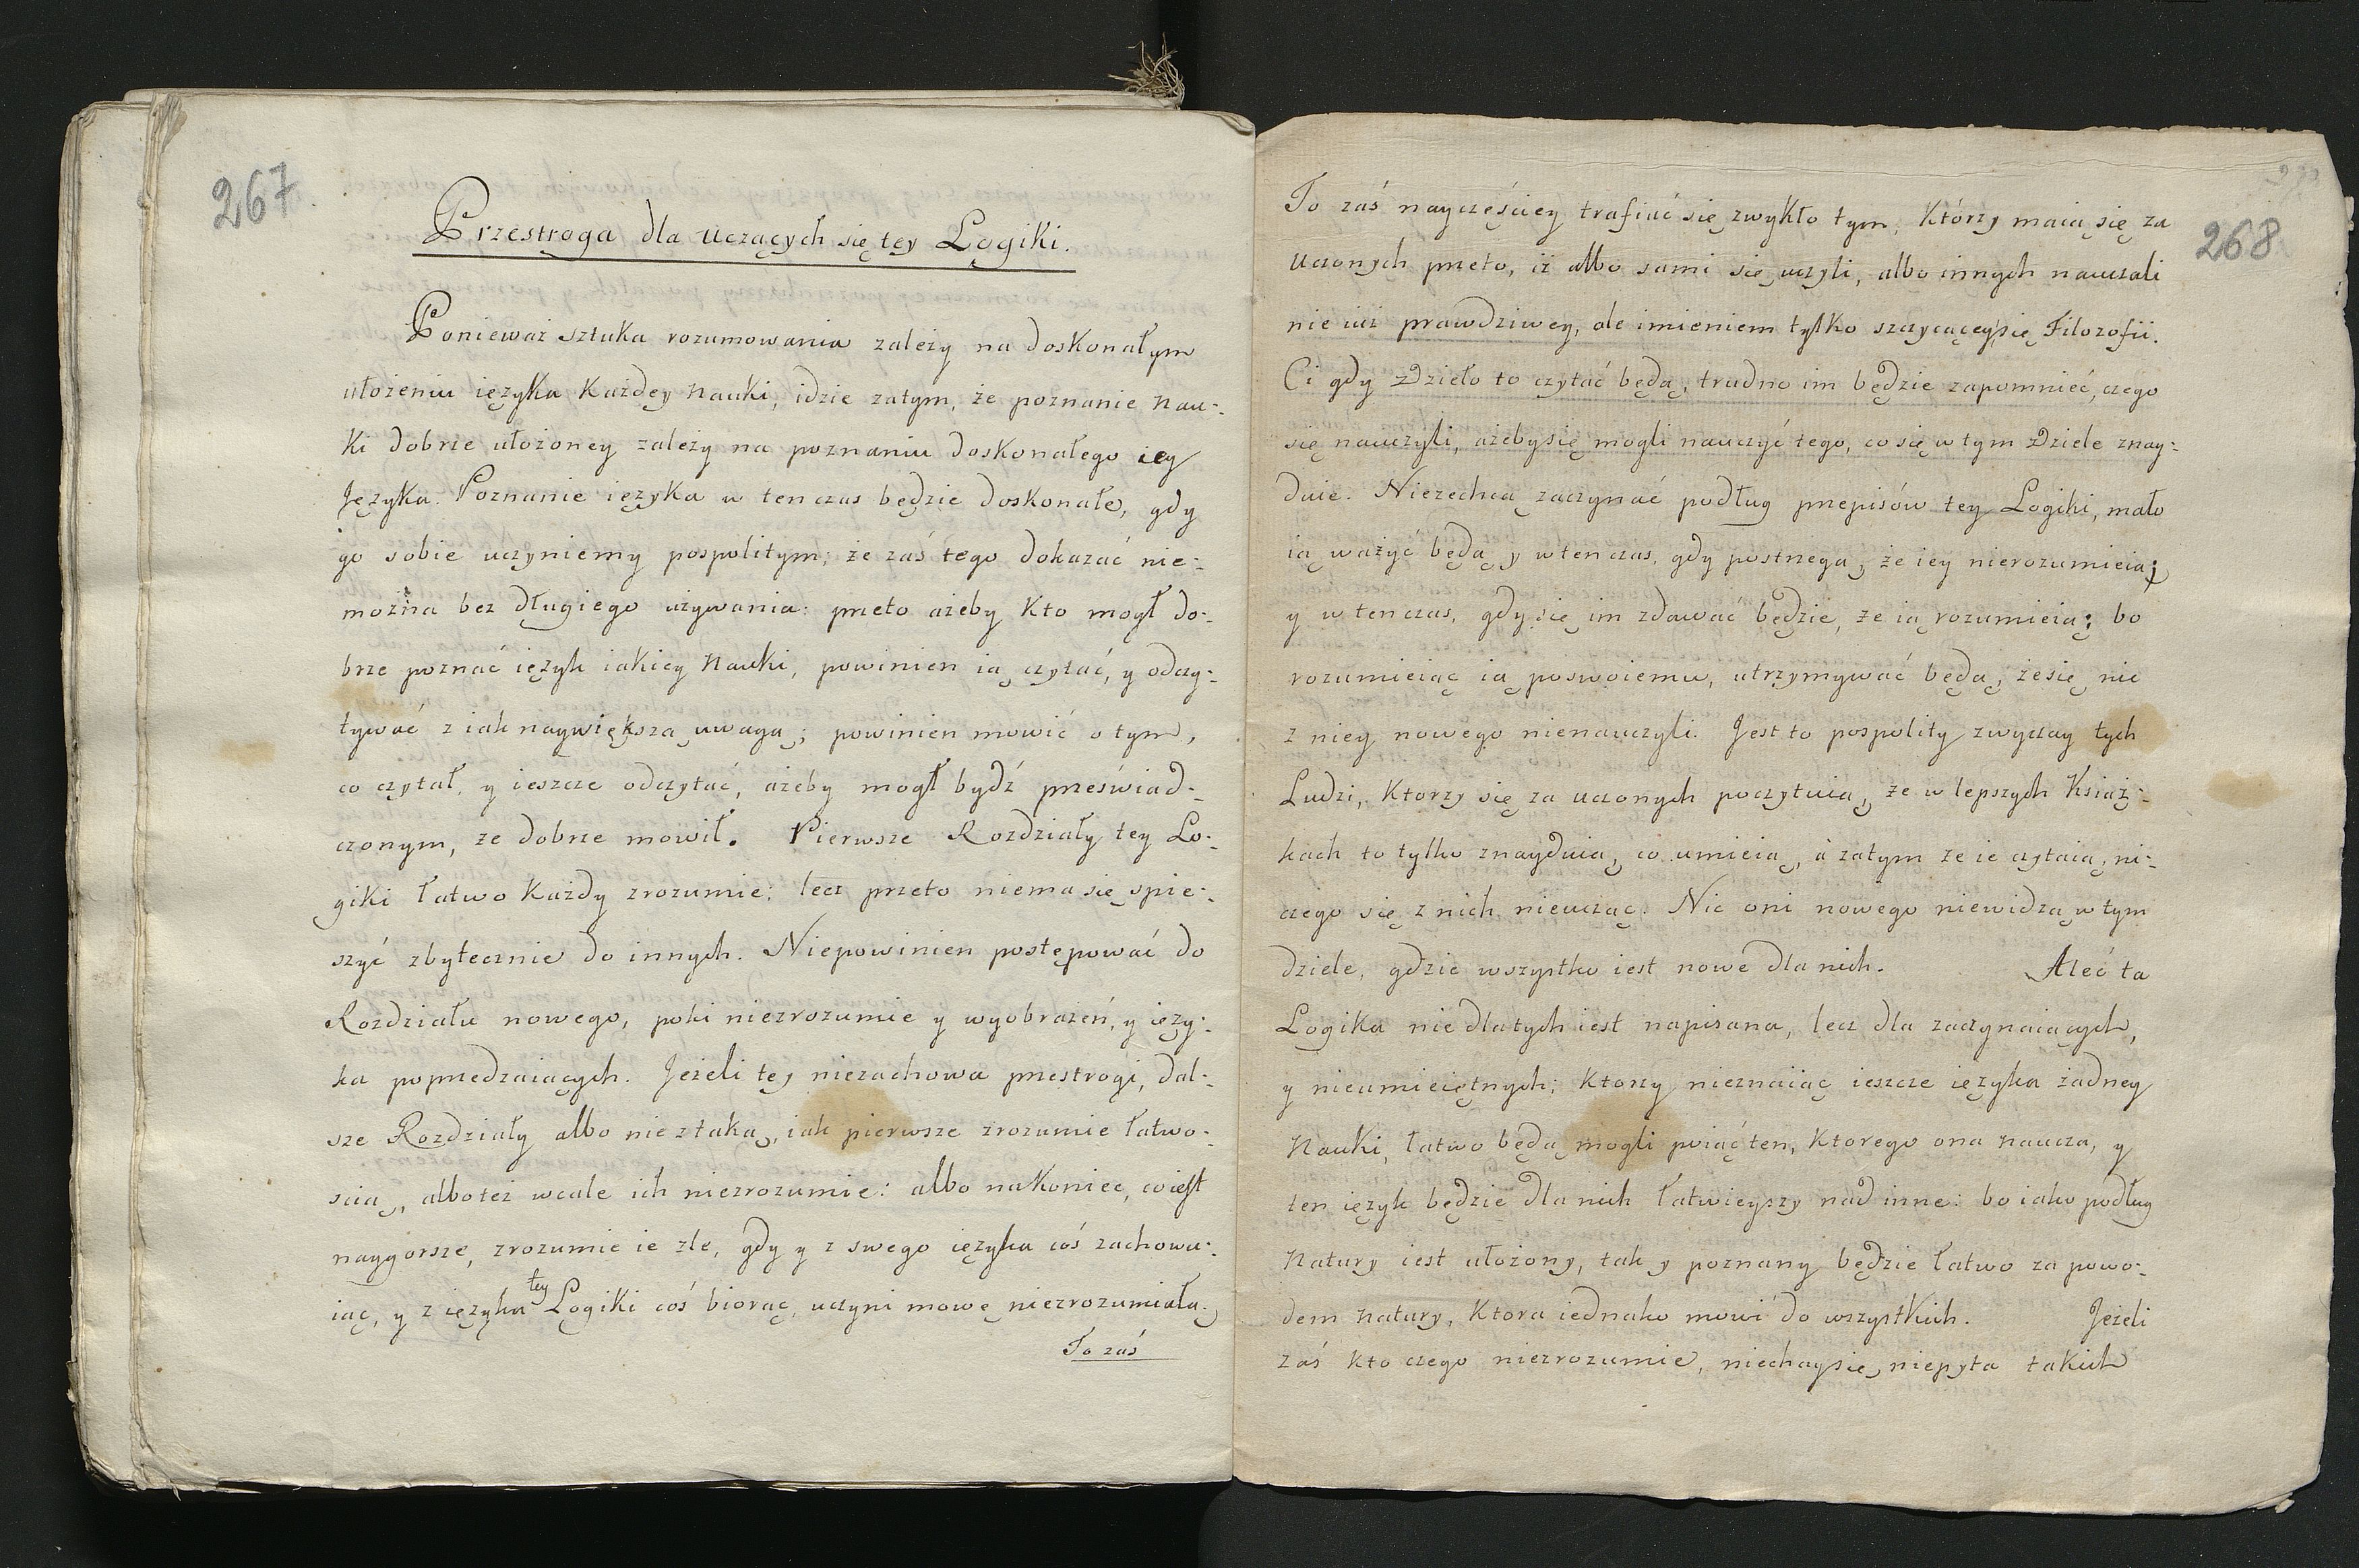 267.
Przestroga dla uczących się tey Logiki.
Ponieważ sztuka rozumowania zależy na doskonałym
ułożeniu ięzyka każdey Nauki, idzie zatym, że poznanie Nau-
ki dobrze ułożoney zależy na poznaniu doskonałego iey
Języka. Poznanie ięzyka w ten czas będzie doskonałe, gdy
go sobie uczyniemy pospolitym; że zaś tego dokazać nie-
można bez długiego używania: przeto ażeby kto mogł do-
brze poznać ięzyk iakiey Nauki, powinien ią czytać, y odczy-
tywać z iak naywiększą uwagą; powinien mowić o tym,
co czytał, y ieszcze odczytać, ażeby mogł bydź przeświad-
czonym, że dobrze mowił. Pierwsze Rozdziały tey Lo-
giki łatwo każdy zrozumie: lecz przeto niema się spie-
szyć zbytecznie do innych. Niepowinien postępować do
Rozdziału nowego, poki niezrozumie y wyobrażeń, y ięzy-
ka poprzedzaiących. Jeżeli tey niezachowa przestrogi, dal-
sze Rozdziały albo nie z taką, iak pierwsze zrozumie łatwo-
scią, albo też wcale ich niezrozumie: albo nakoniec, co iest
naygorsze, zrozumie ie zle, gdy y z swego ięzyka coś zachowu-
iąc, y z ięzyka tey Logiki coś biorąc, uczyni mowę niezrozumiałą.
To zaś
268
To zaś nayczęściey trafiać się zwykło tym, którzy maią się za
Uczonych przeto, iż albo sami się uczyli, albo innych nauczali
nie iuż prawdziwey, ale imieniem tylko szczycącey się Filozofii.
Ci gdy Dzieło to czytać będą, trudno im będzie zapomnieć, czego
się nauczyli, ażeby się mogli nauczyć tego, co się w tym Dziele znay-
duie. Niezechcą zaczynać podług przepisów tey Logiki, mało
ią ważyć będą y w ten czas, gdy postrzegą, że iey nierozumieią;
y w ten czas, gdy się im zdawać będzie, że ią rozumieią; bo
rozumieiąc ią poswoiemu, utrzymywać będą, że się nic
z niey nowego nienauczyli. Jest to pospolity zwyczay tych
Ludzi, ktorzy się za uczonych poczytuią, że w lepszych Książ-
kach to tylko znayduią, co umieią, a zatym że ie czytaią, ni-
czego się z nich nieucząc. Nic oni nowego niewidzą w tym
dziele, gdzie wszystko iest nowe dla nich. Aleć ta
Logika nie dla tych iest napisana, lecz dla zaczynaiących,
y nieumieiętnych; ktorzy nieznaiąc ieszcze ięzyka żadney
Nauki, łatwo będą mogli poiąć ten, ktorego ona naucza, y
ten ięzyk będzie dla nich łatwieyszy nad inne: bo iako podług
Natury iest ułożony, tak y poznany będzie łatwo za powo-
dem Natury, ktora iednako mowi do wszystkich. Jeżeli
zaś kto czego niezrozumie, niechay się niepyta takich